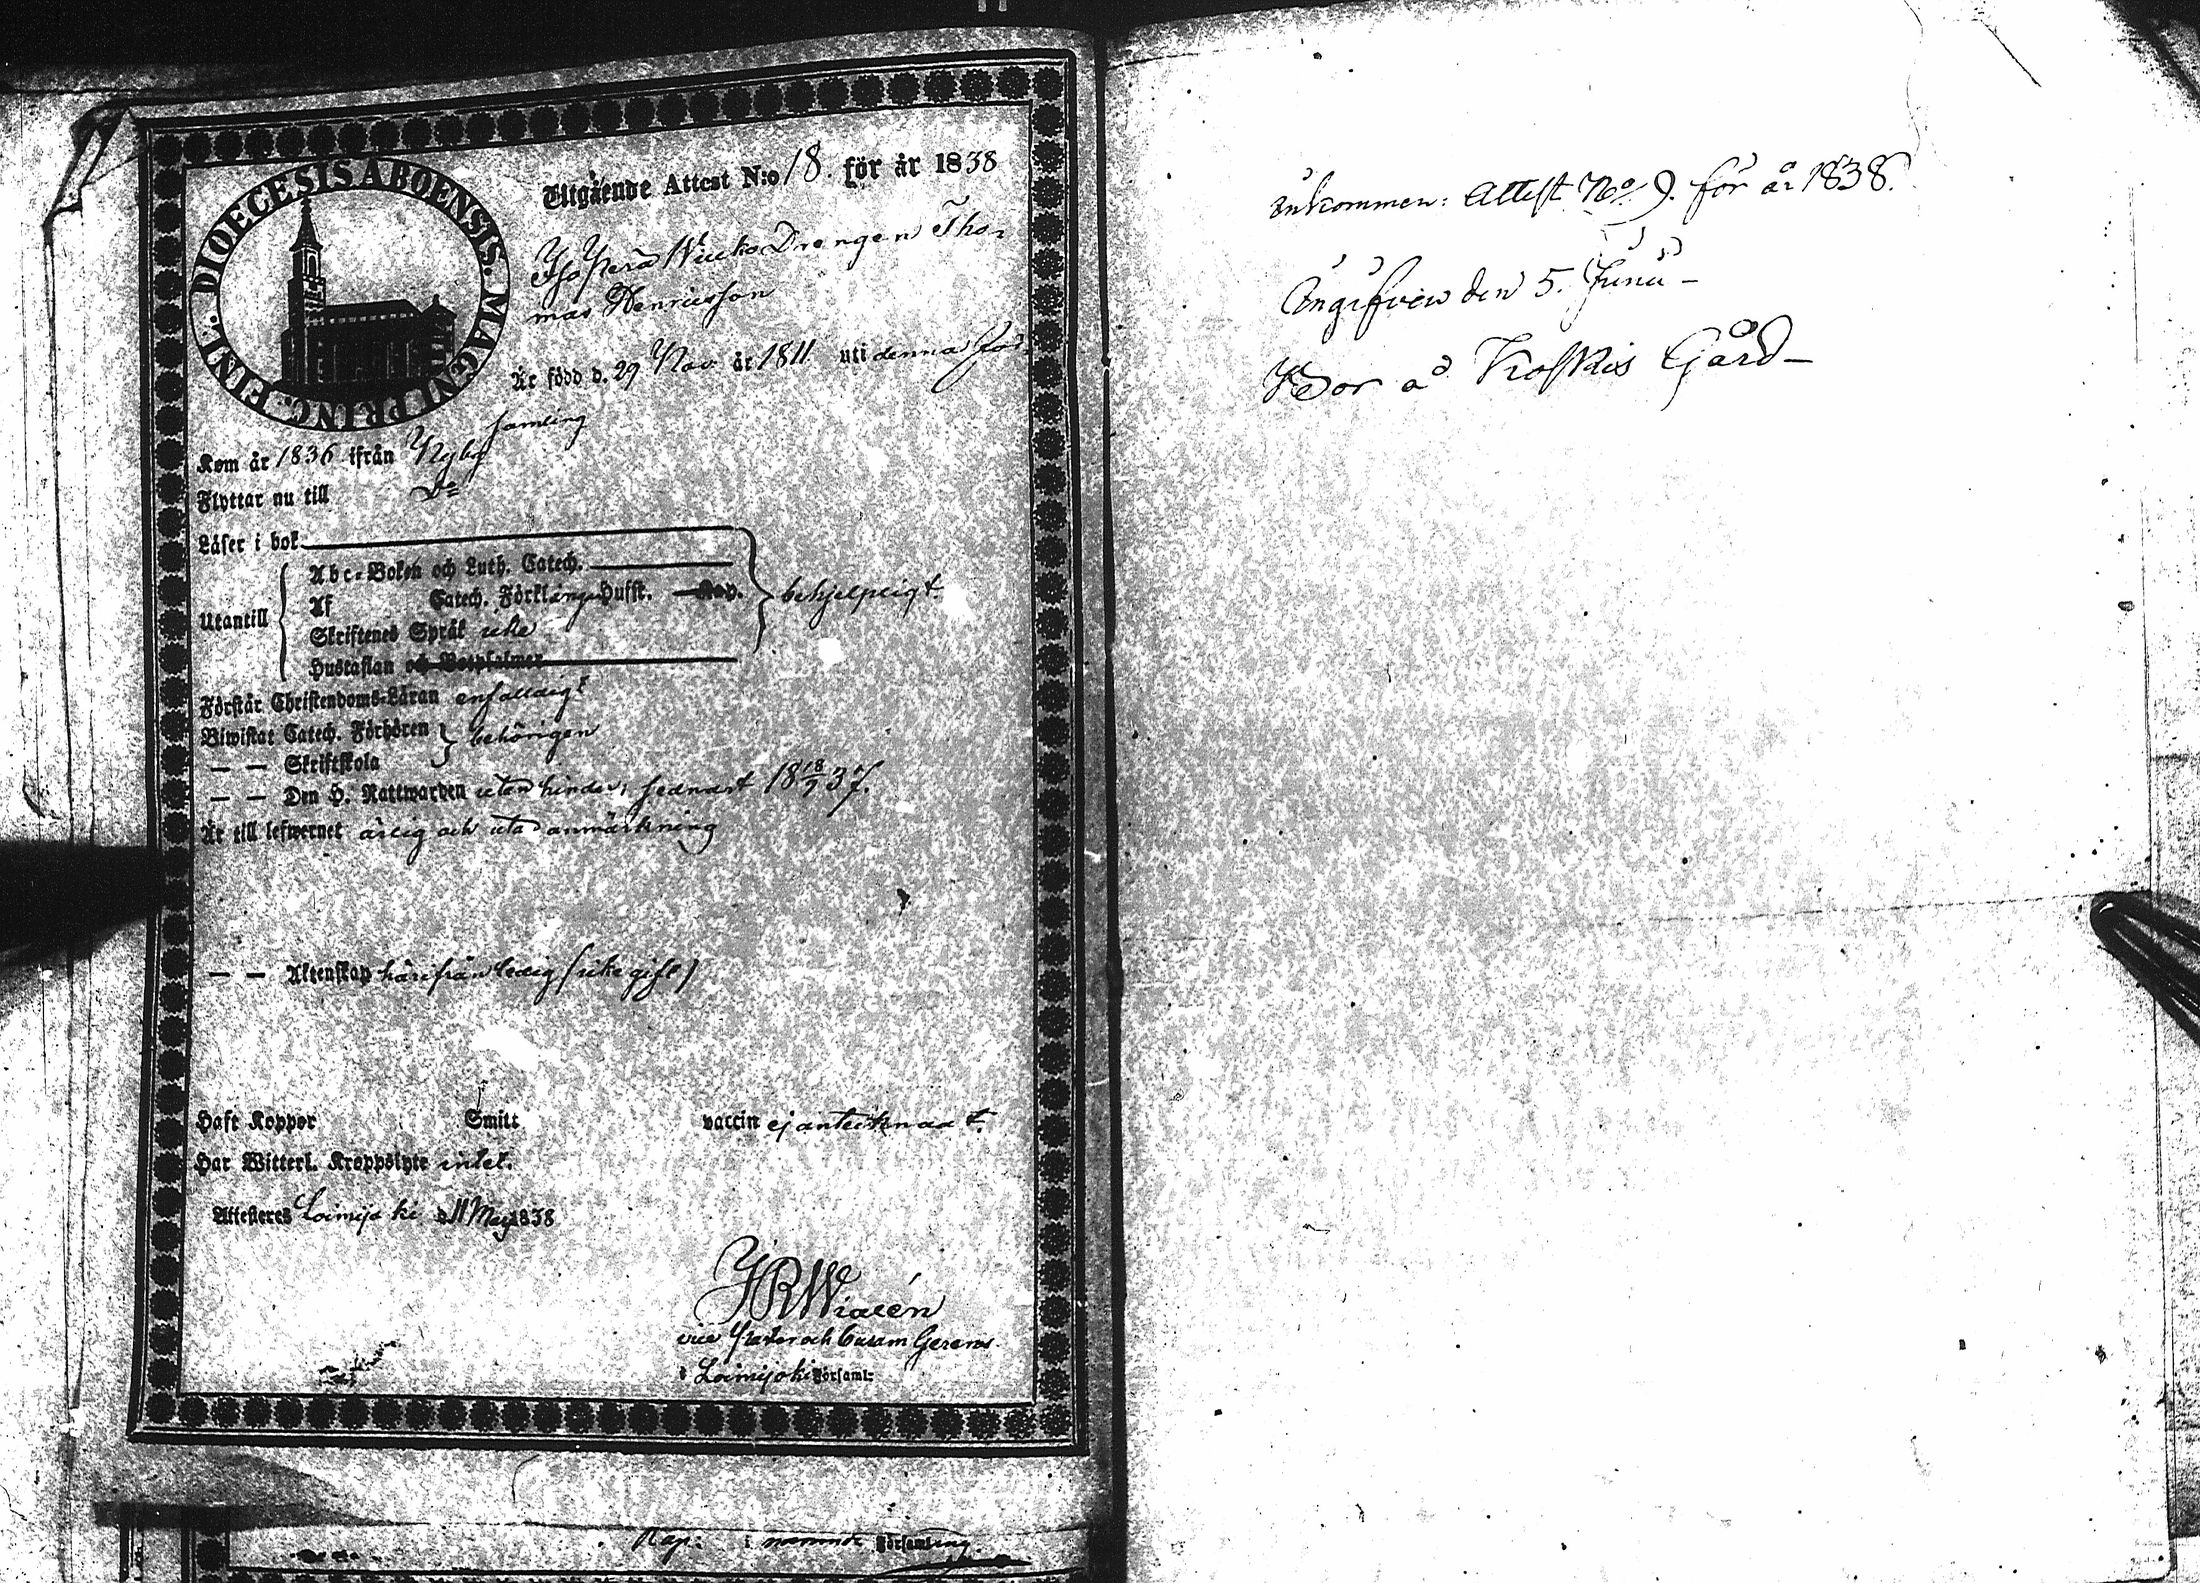 DIOECESIS ABOENSIS. MAGNI PRINC. FINL.
Utgående Attest N:o 18. för år 1838
Drengen Tho-
mas Henricsson
Är född d. 29 Nov. år 1811 uti denna För-
samling
Kom år 1836 ifrån Nyby
Flyttar nu till Do
Läser i bok
Utantill
Abc-Boken och Luth. Catech.
Af Catech. Förklaring Husst. Kap.
Skriftenes Språk icke
Hustaflan och Botpsalmer
behjelpligt
Förstår Christendoms-Läran enfaldigt
Biwistat Catech. Förhören
— — Skriftskola
behörigen
— — Den H. Nattwarden utan hinder, sednast 18 18/9 37.
Är till lefwernet ärlig och utan anmärkning
— — Äktenskap härifrån ledig (icke gift)
Haft Koppor Smitt vaccin ej antecknadt.
Har Witterl. Kroppslyte intet.
Attesteres Loimijoki d. 11 Maji 1838
vice Pastor och Curam Gerens
i Loimijoki Församl:
Kap: i nämnde Församling
Inkommen: Attest No 9. för år 1838.
Angifven den 5. Junii —
Bor å Koskis Gård —